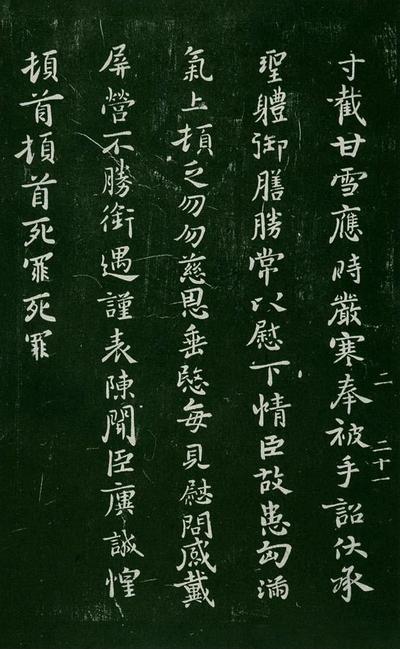 寸截甘雪應時嚴寒奉被手詔伏承
二 二十一
聖體御膳勝常以慰下情臣故患匈滿
氣上頓乏勿勿慈恩垂愍每見慰問感戴
屏營不勝銜遇謹表陳聞臣廙誠惶
頓首頓首死罪死罪